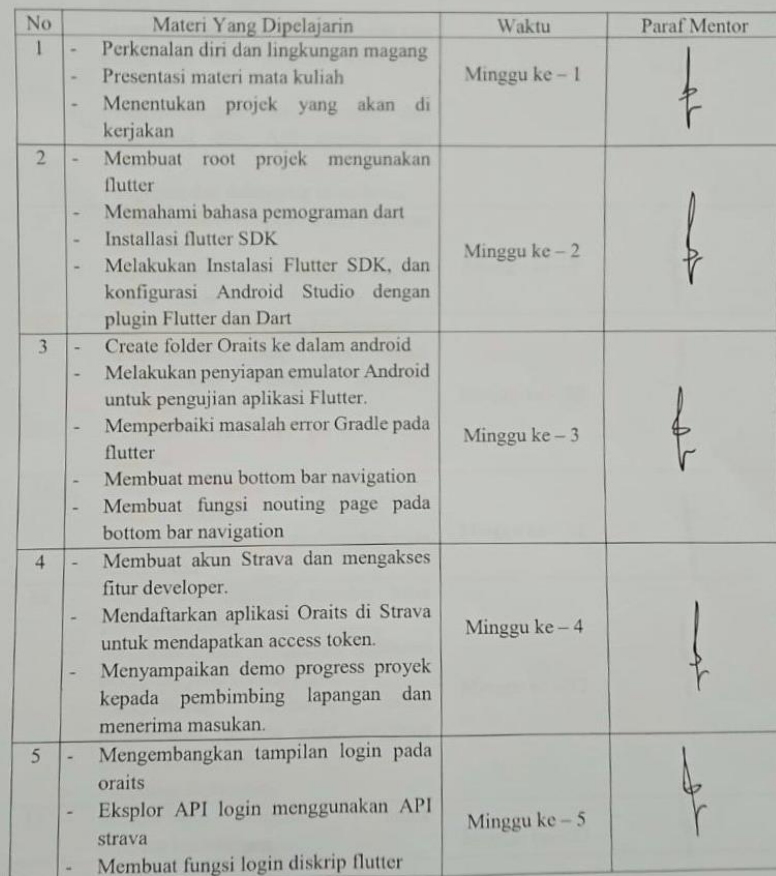 No Materi Yang Dipelajarin Waktu Paraf Mentor
1 - Perkenalan diri dan lingkungan magang
- Presentasi materi mata kuliah Minggu ke – 1
- Menentukan projek yang akan di
kerjakan
2 - Membuat root projek mengunakan
flutter
- Memahami bahasa pemograman dart
- Installasi flutter SDK
- Melakukan Instalasi Flutter SDK, dan Minggu ke – 2
konfigurasi Android Studio dengan
plugin Flutter dan Dart
3 - Create folder Oraits ke dalam android
- Melakukan penyiapan emulator Android
untuk pengujian aplikasi Flutter.
- Memperbaiki masalah error Gradle pada Minggu ke – 3
flutter
- Membuat menu bottom bar navigation
- Membuat fungsi nouting page pada
bottom bar navigation
4 - Membuat akun Strava dan mengakses
fitur developer.
- Mendaftarkan aplikasi Oraits di Strava
untuk mendapatkan access token. Minggu ke – 4
- Menyampaikan demo progress proyek
kepada pembimbing lapangan dan
menerima masukan.
5 - Mengembangkan tampilan login pada
oraits
- Eksplor API login menggunakan API
strava Minggu ke – 5
- Membuat fungsi login diskrip flutter